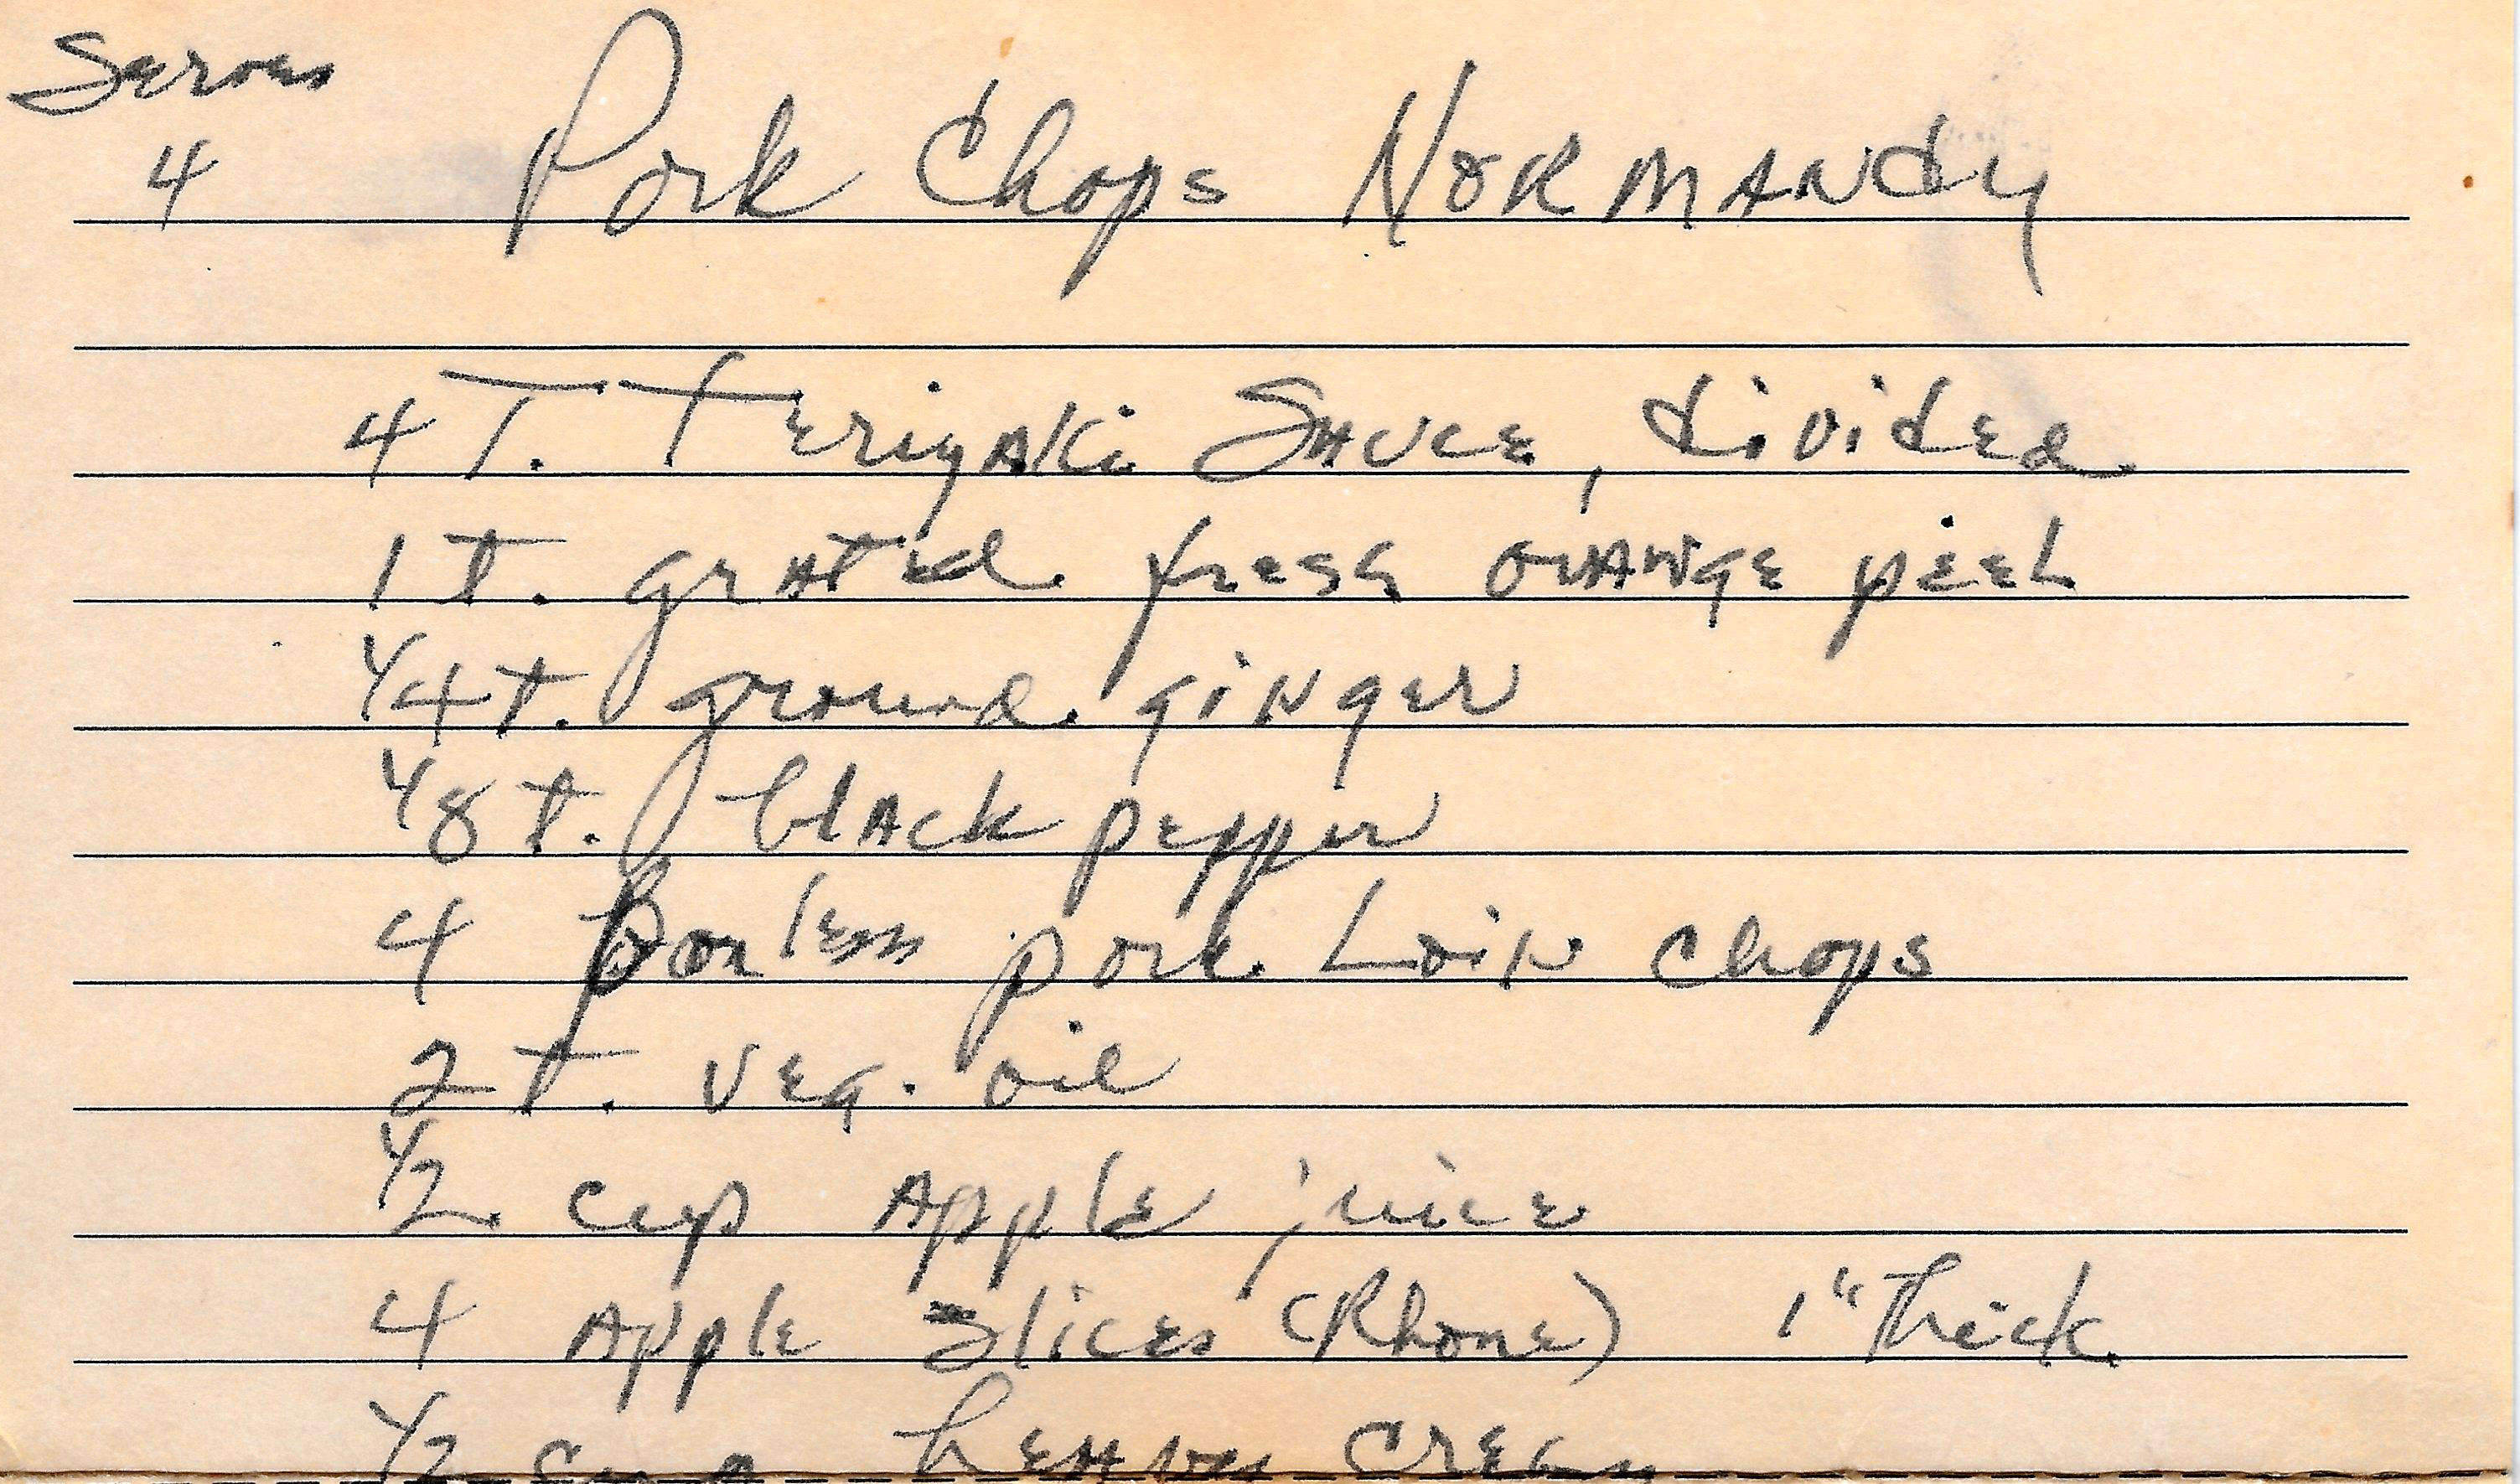 Serves
4 Pork Chops NORMANdy
4 T. TeriyAKi SAUCE, divided
1 t. grated fresh orANge peel
1/4 t. ground ginger
1/8 t. blAck pepper
4 Bonless pork Loin chops
2 t. veg. oil
1/2 cup Apple juice
4 Apple slices (Rhome) 1" Thick
1/2 cup heavy cream